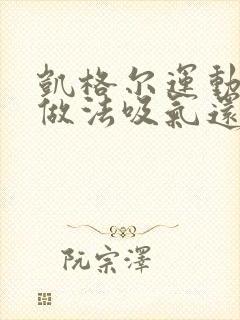 凯格尔運動
做法吸氣還
阮宗澤